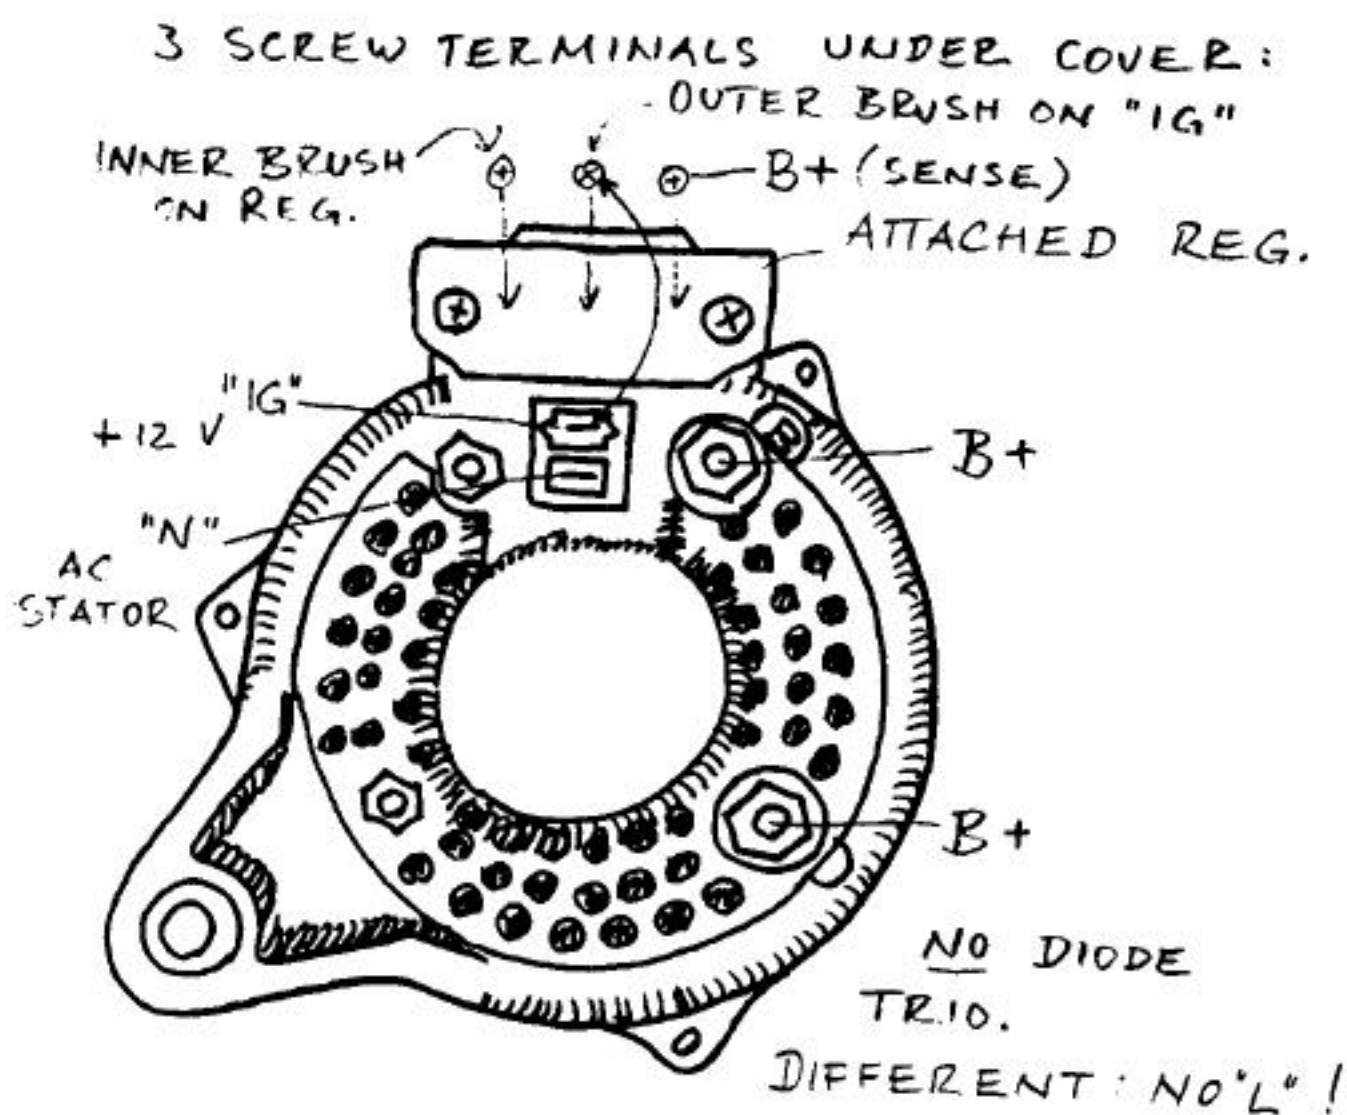 3 SCREW TERMINALS UNDER COVER:
OUTER BRUSH ON "IG"
INNER BRUSH
ON REG.
B+ (SENSE)
ATTACHED REG.
"IG"
+12 V
B+
"N"
AC
STATOR
B+
NO DIODE
TRIO.
DIFFERENT: NO "L" !